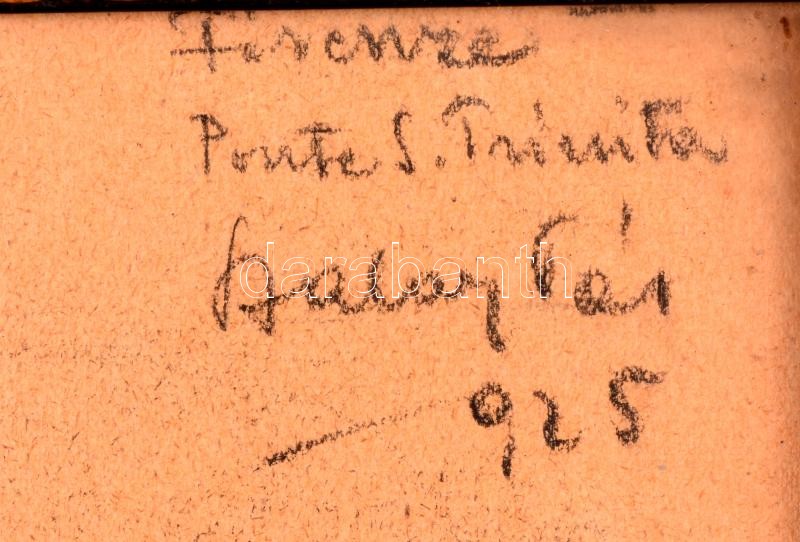 Firenze
Ponte S. Trinita
Pál
925
darabanth